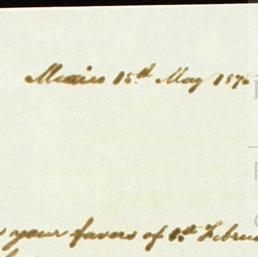 Mexico 15th May 187
your favors of 1st Febru